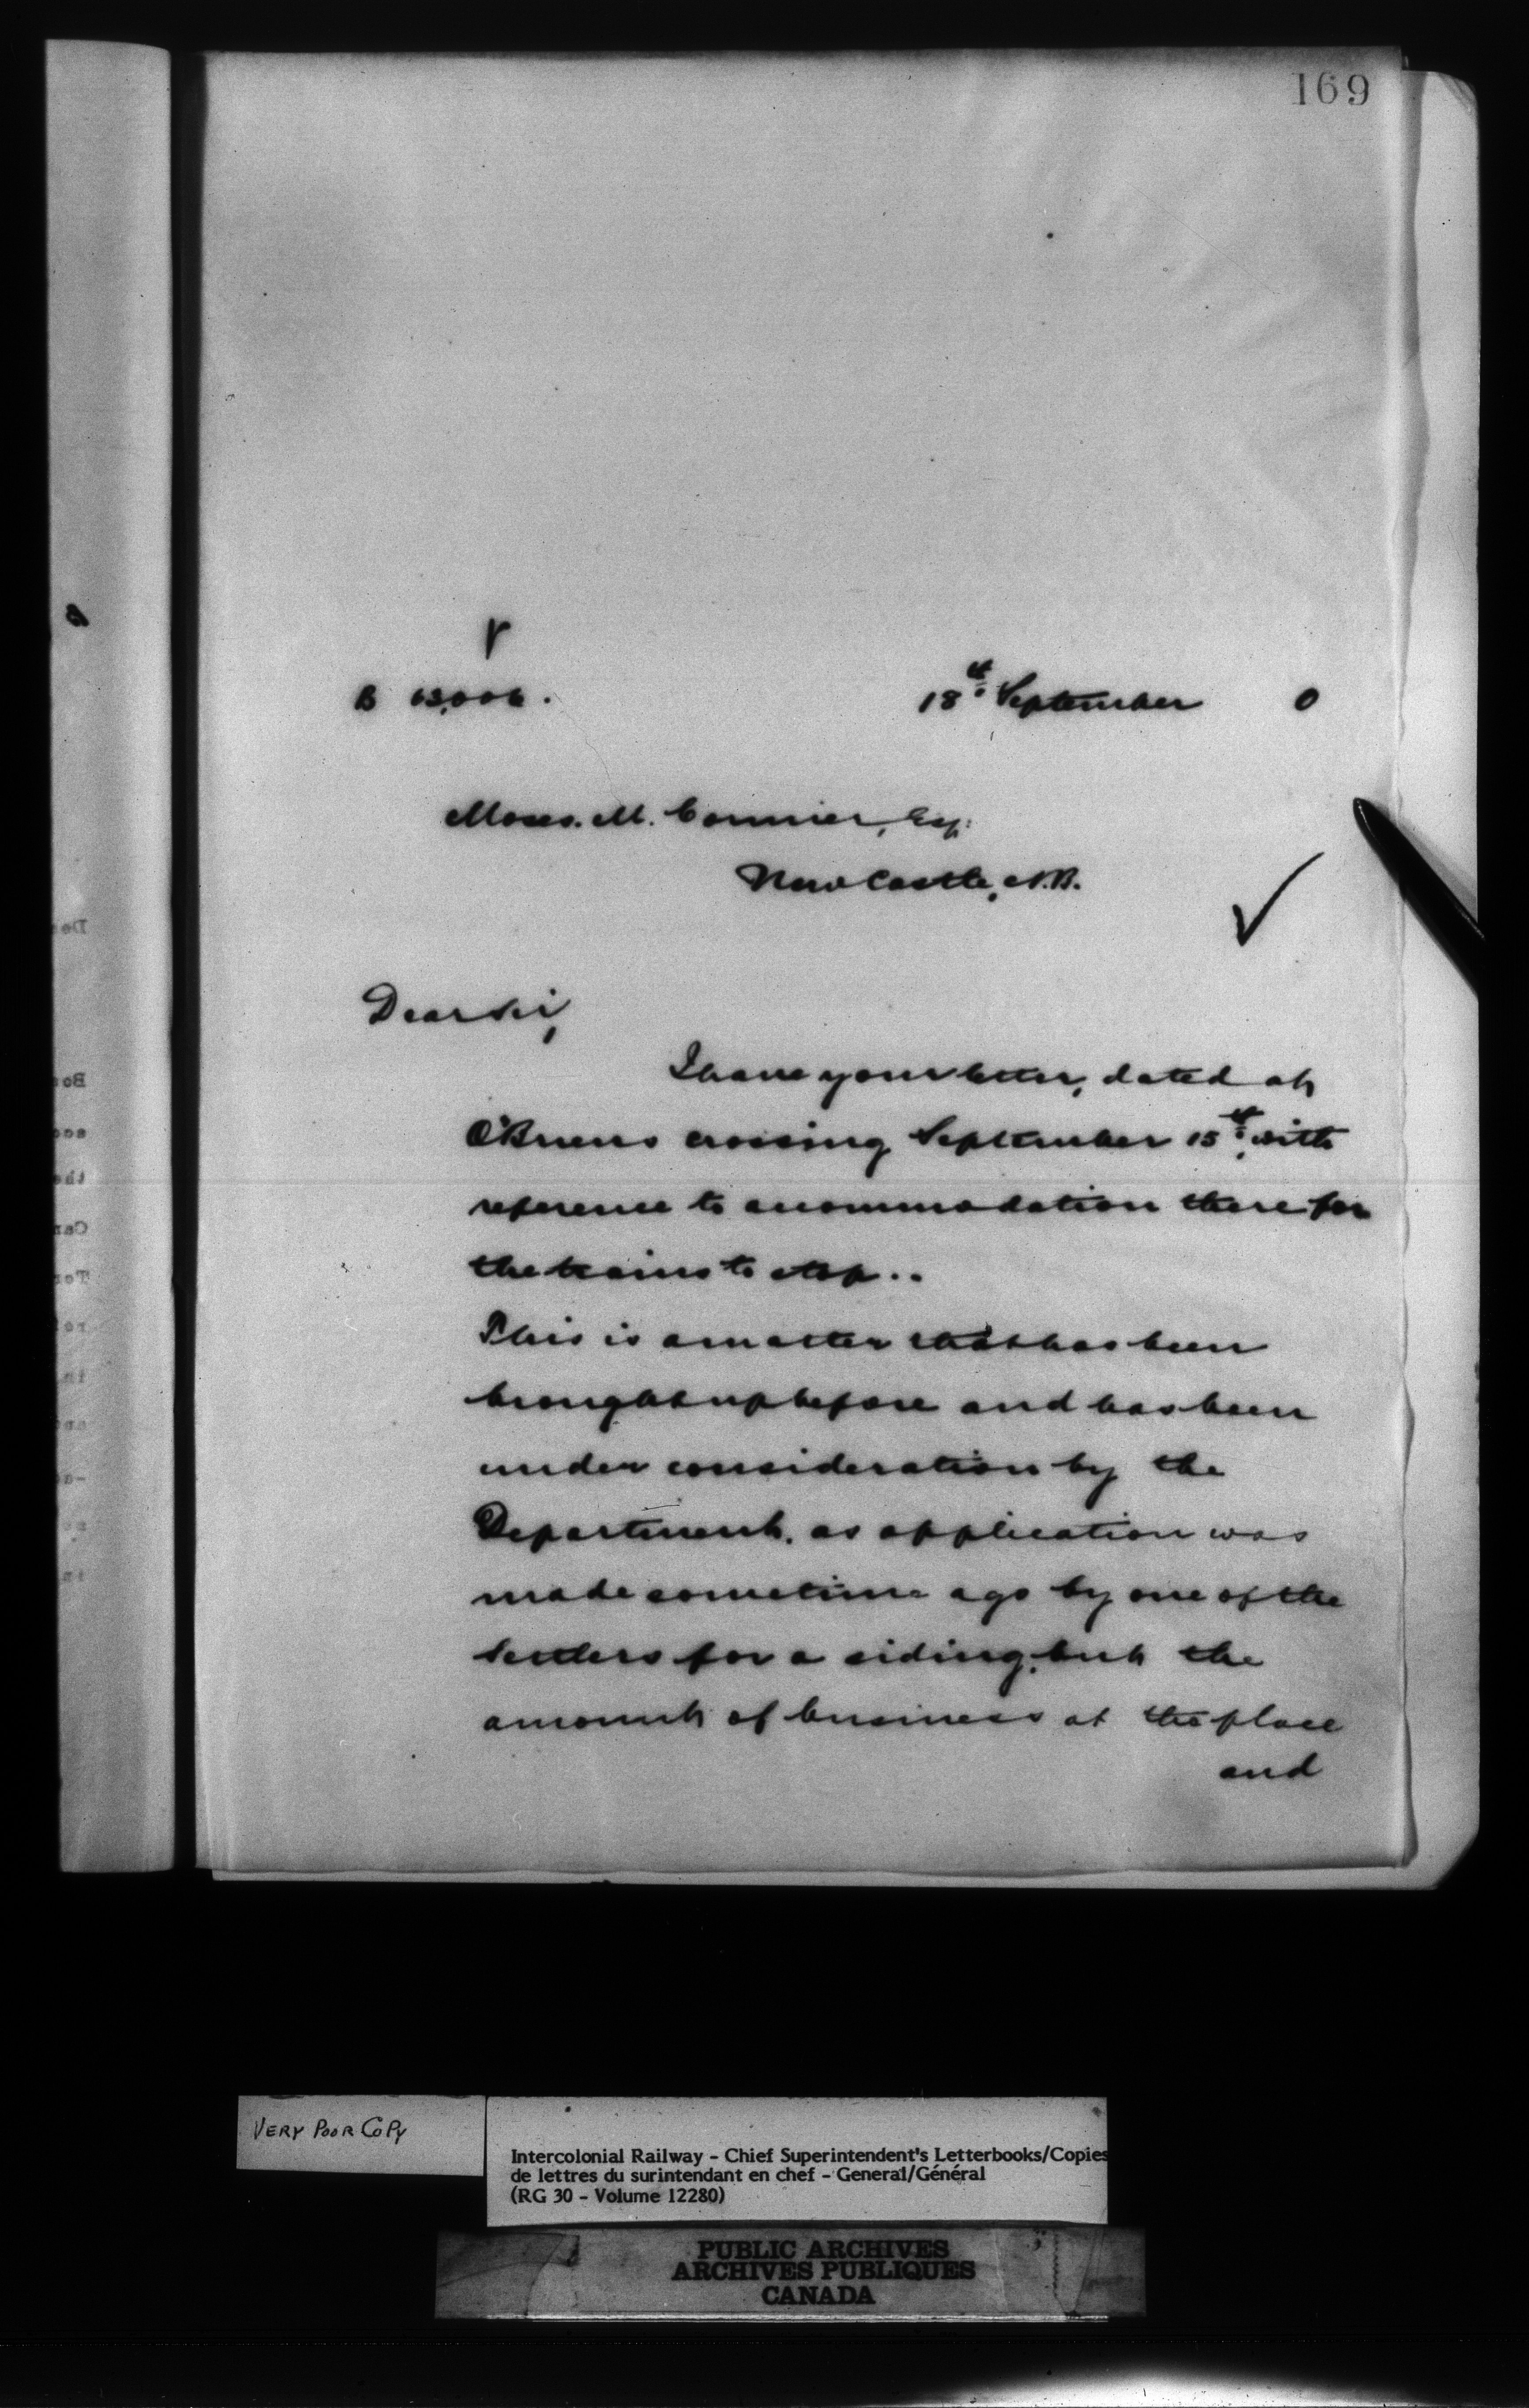 169
B 63,006.
18th September 0
Moses. M. Cormier, Esq:
New Castle, N.B.
Dear Sir,
I have your letter, dated at
O'Briens crossing September 15th, with
reference to accommodation there for
the trains to stop..
This is a matter that has been
brought up before and has been
under consideration by the
Department, as application was
made sometime ago by one of the
Settlers for a siding, but the
amount of business at the place
and
VERY POOR COPY
Intercolonial Railway - Chief Superintendent's Letterbooks/Copies
de lettres du surintendant en chef - General/Général
(RG 30 - Volume 12280)
PUBLIC ARCHIVES
ARCHIVES PUBLIQUES
CANADA